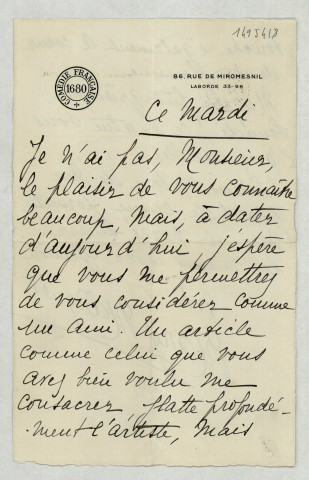 149541/8
COMÉDIE FRANÇAISE
1680
86. RUE DE MIROMESNIL
LABORDE 33-96
Ce Mardi
Je n'ai pas, Monsieur,
le plaisir de vous connaître
beaucoup, mais, à dater
d'aujourd'hui j'espère
que vous me permettrez
de vous considérer comme
un ami. Un article
comme celui que vous
avez bien voulu me
consacrer flatte profondé-
-ment l'artiste, mais